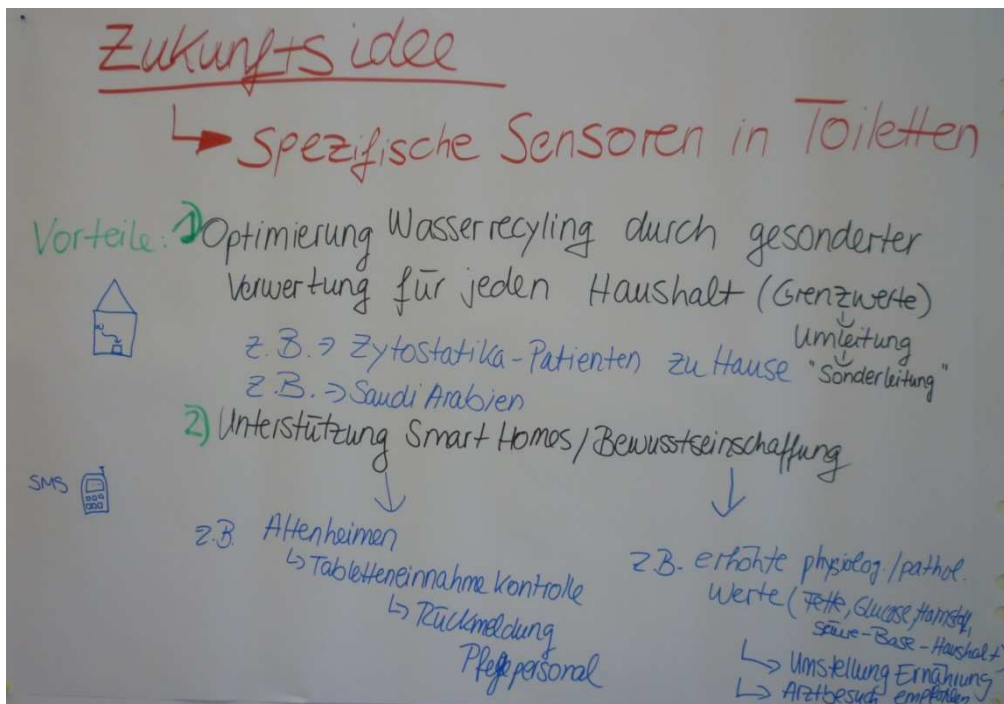 Zukunftsidee
↳ Spezifische Sensoren in Toiletten
Vorteile: 1) Optimierung Wasserrecyling durch gesonderter
Verwertung für jeden Haushalt (Grenzwerte)
↓
Umleitung
↓
"Sonderleitung"
z.B. → Zytostatika-Patienten zu Hause
z.B. → Saudi Arabien
2) Unterstützung Smart Homes / Bewusstseinschaffung
SMS
z.B. Altenheimen
↳ Tabletteneinnahme Kontrolle
↳ Rückmeldung
Pflegepersonal
z.B. erhöhte physiolog./pathol.
Werte (Fette, Glucose, Harnstoff,
Säure-Base-Haushalt)
↳ Umstellung Ernährung
↳ Arztbesuch empfohlen